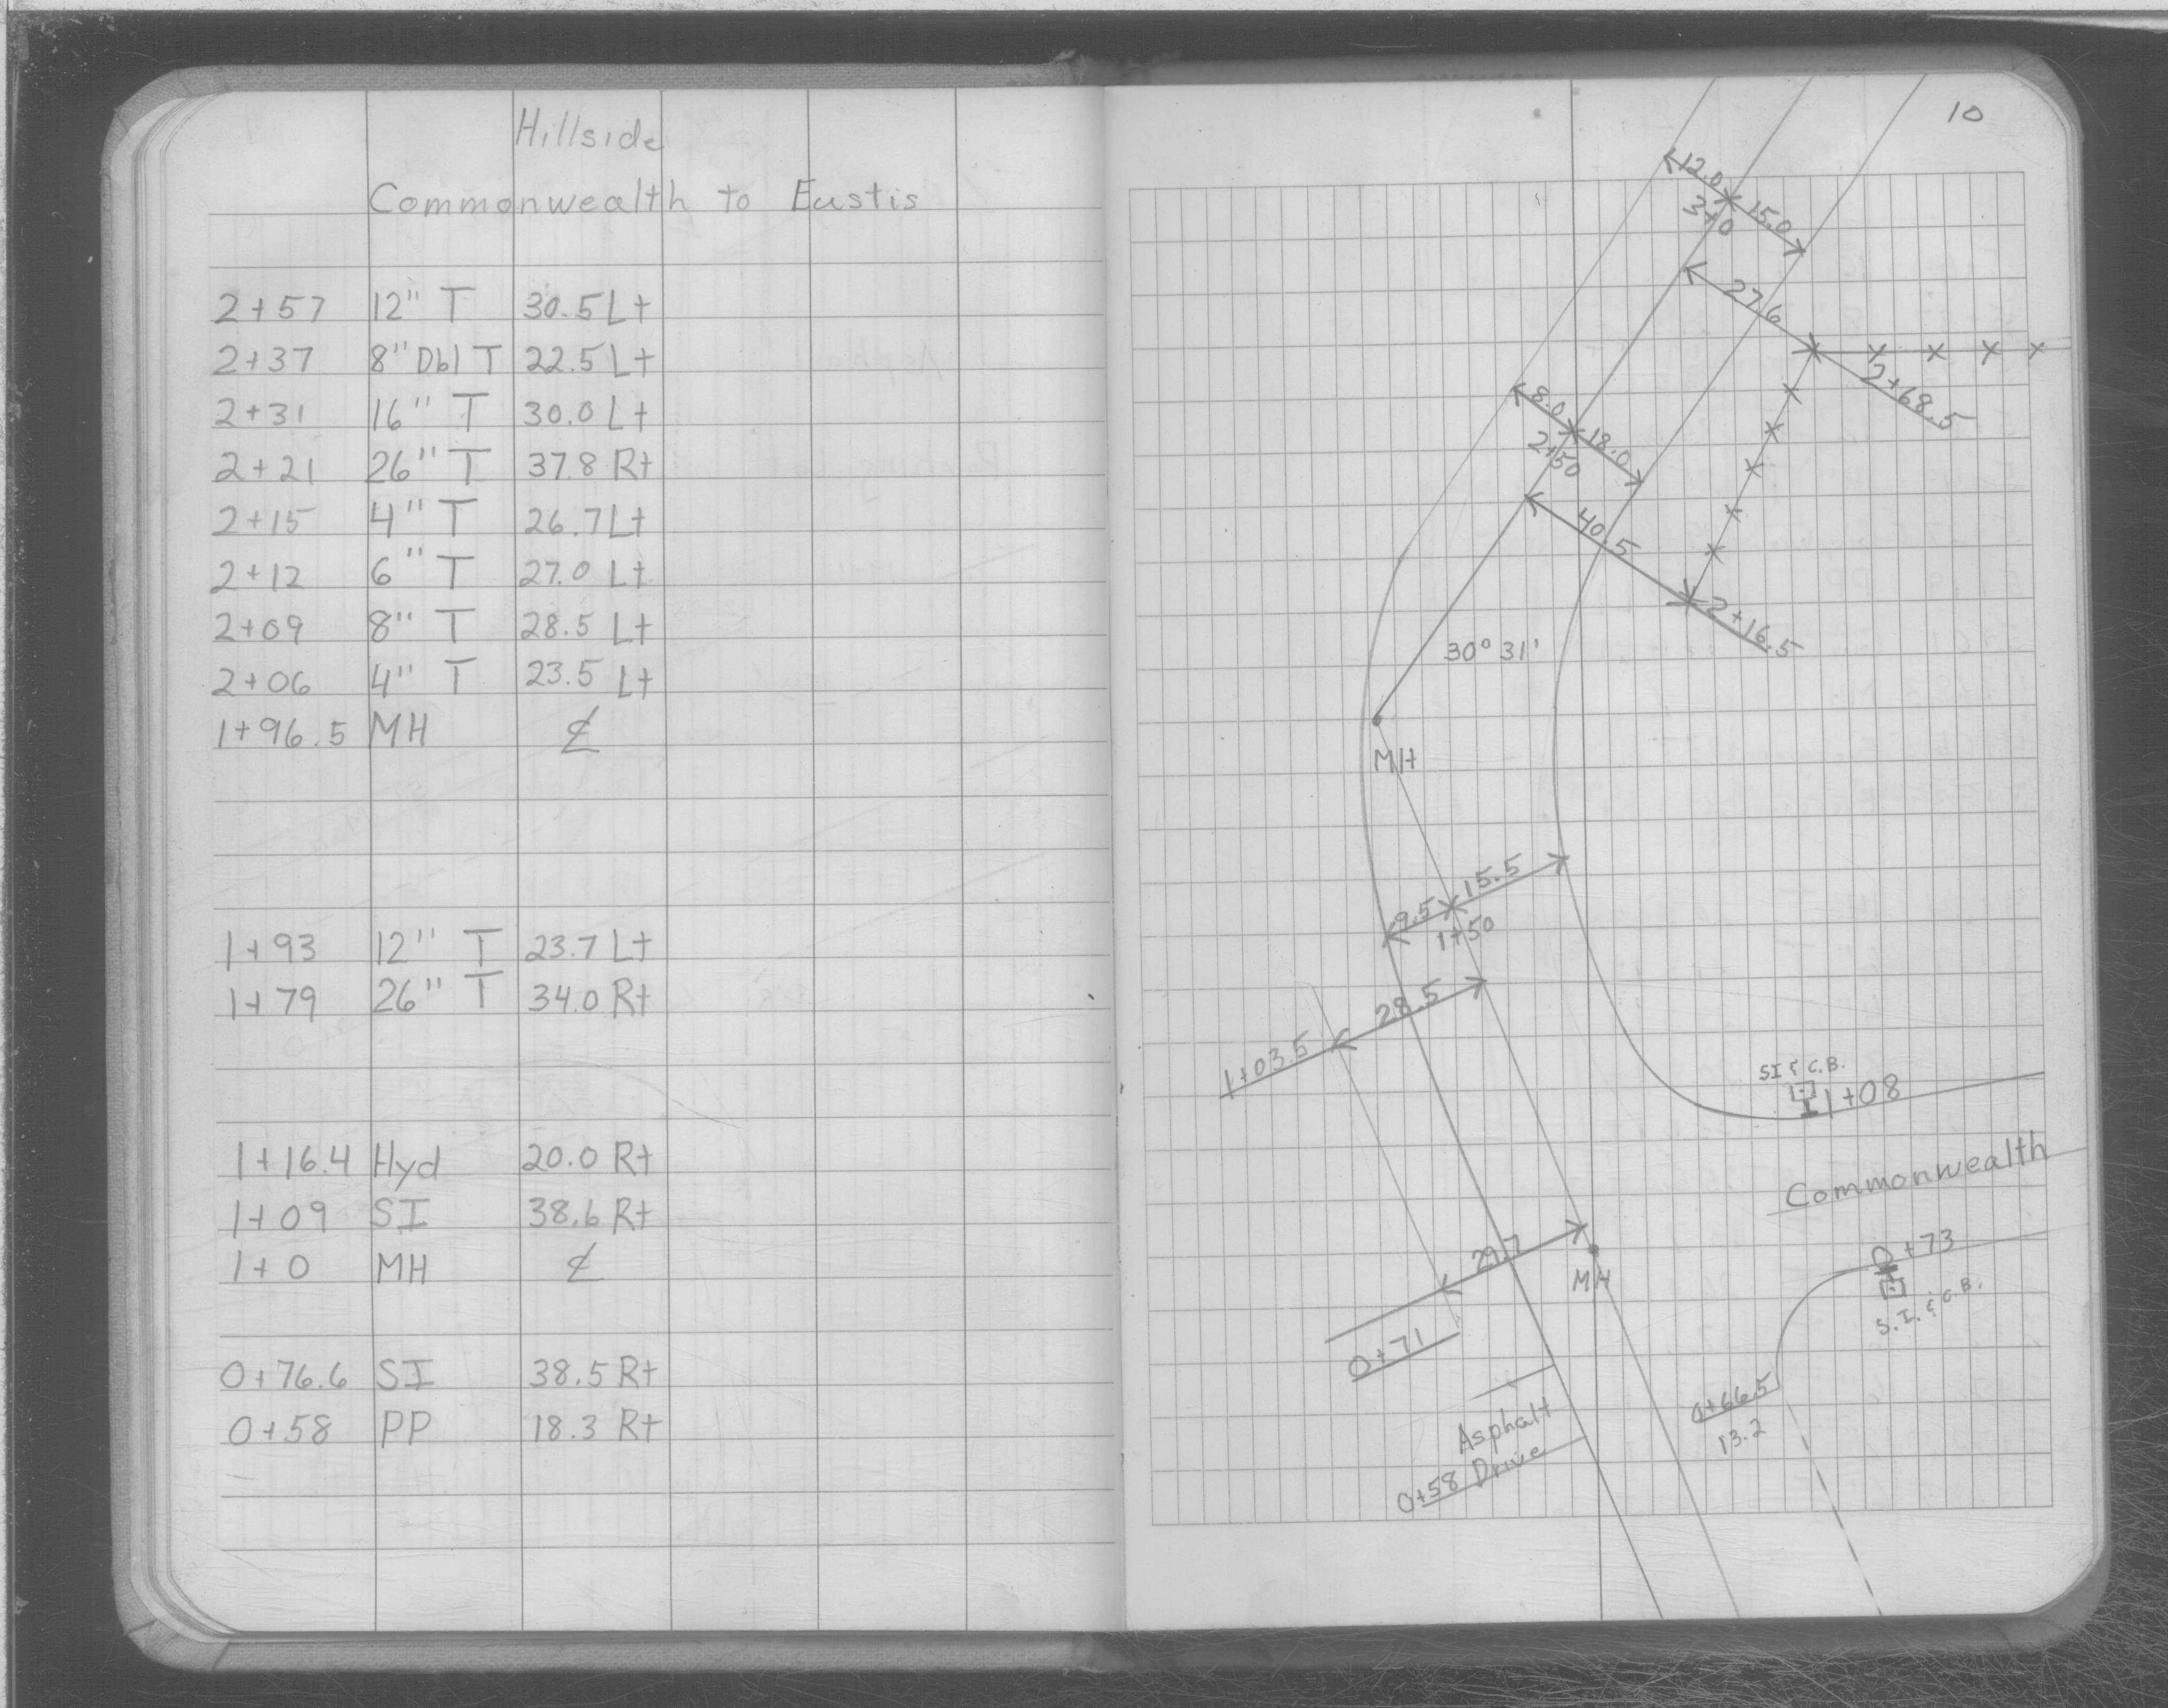 Hillside
Commonwealth to Eustis
2+57 12" T 30.5 Lt
2+37 8" Dbl T 22.5 Lt
2+31 16" T 30.0 Lt
2+21 26" T 37.8 Rt
2+15 4" T 26.7 Lt
2+12 6" T 27.0 Lt
2+09 8" T 28.5 Lt
2+06 4" T 23.5 Lt
1+96.5 MH ℄
1+93 12" T 23.7 Lt
1+79 26" T 34.0 Rt
1+16.4 Hyd 20.0 Rt
1+09 SI 38.6 Rt
1+0 MH ℄
0+76.6 SI 38.5 Rt
0+58 PP 18.3 Rt
10
12.0
3+0
15.0
27.6
2+68.5
8.0
18.0
2+50
40.5
2+16.5
30° 31'
MH
9.5
15.5
1+50
28.5
1+03.5
SI & C.B.
1+08
Commonwealth
29.7
MH
0+71
0+73
S.I. & C.B.
0+66.5
13.2
Asphalt
0+58 Drive